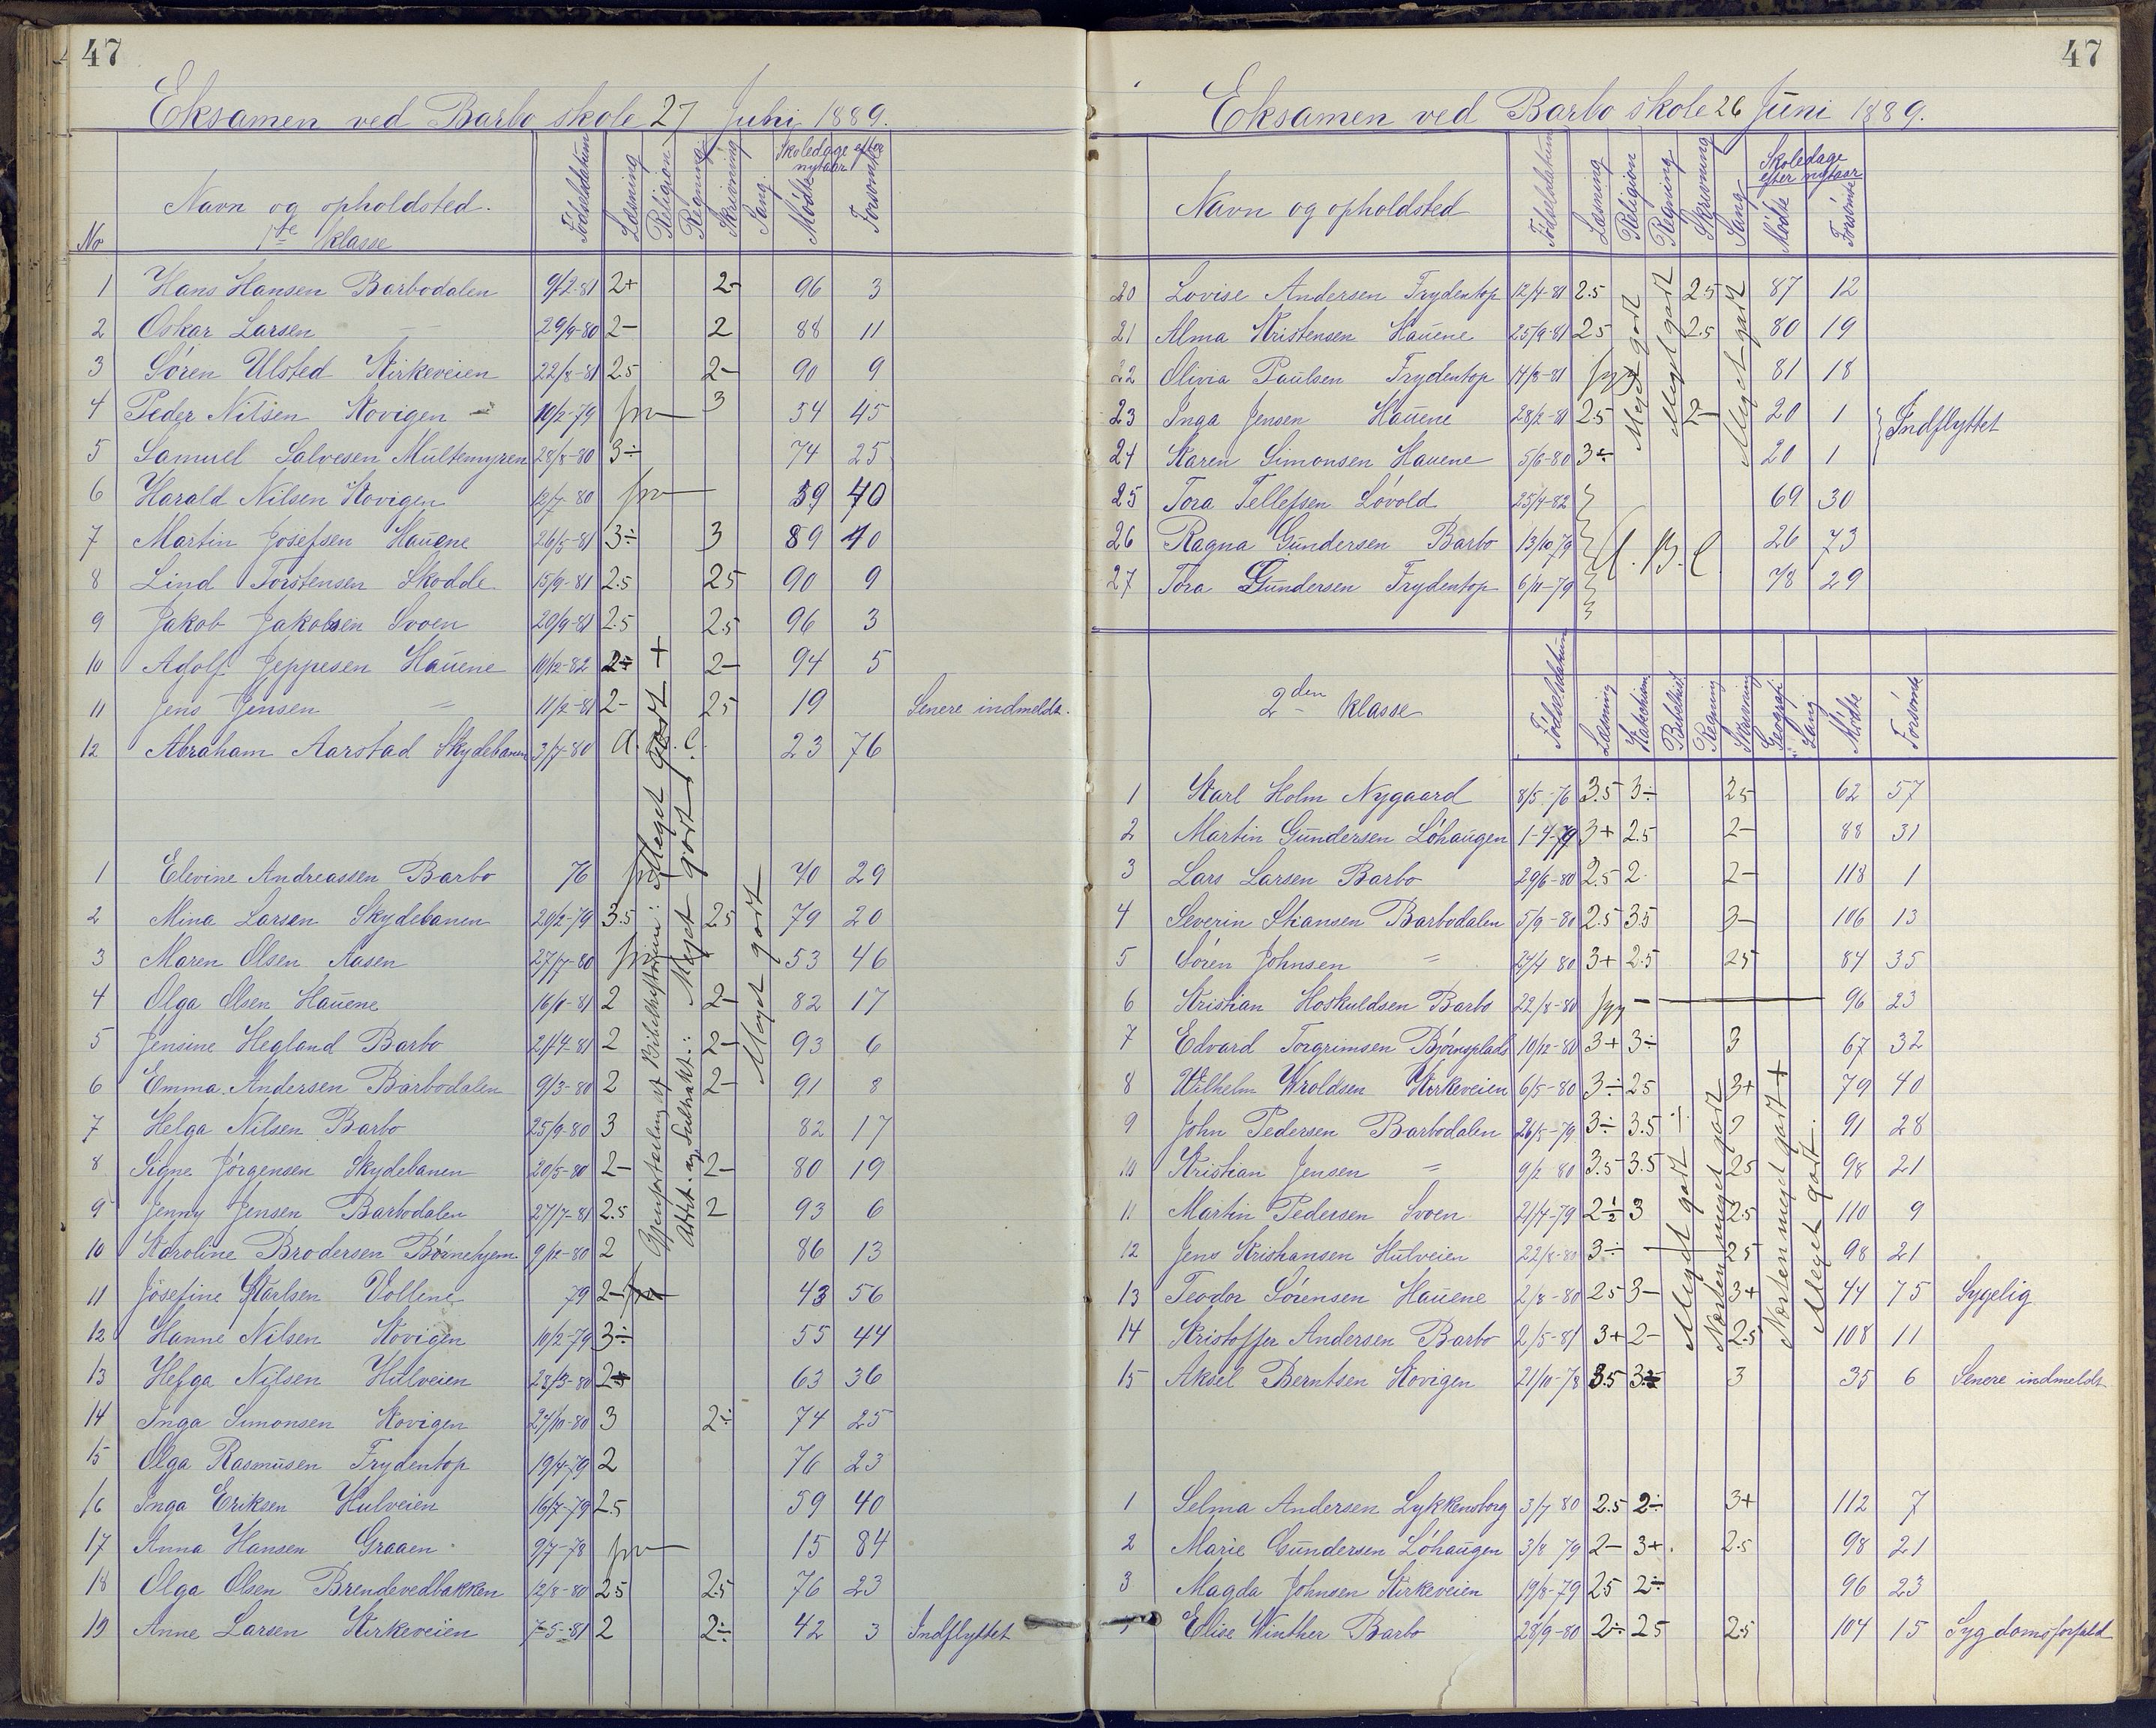 47
Eksamen ved Barbo skole 27 Juni 1889.
No
Navn og opholdsted.
1te klasse
Fódselsdatum
Læsning
Religion
Regning
Skrivning
Sang.
Skoledage efter nytaar
Módte
Forsómte
1 Hans Hansen Barbodalen 9/2-81 2+ 2- 96 3
2 Oskar Larsen — 29/9-80 2- 2 88 11
3 Sóren Ulsted Kirkeveien 22/8-81 2.5 2- 90 9
4 Peder Nilsen Kovigen 10/2-79 3 54 45
5 Samuel Salvesen Multemyren 28/8-80 3÷ 74 25
6 Harald Nilsen Kovigen 12/7-80 59 40
7 Martin Josefsen Hauene 26/5-81 3÷ 3 89 10
8 Lind Torstensen Skodde 15/9-81 2.5 25 90 9
9 Jakob Jakobsen Svoen 29/9-81 2.5 2.5 96 3
10 Adolf Jeppesen Hauene 10/12-82 2÷ 2- 94 5
11 Jens Jensen = 11/2-81 2- 25 19 Senere indmeldt.
12 Abraham Aarstad Skydebanen 3/7-80 23 76
Gjenfortæling af Bibelhistorien: Meget godt +
Addit. og Subtrakt.: Meget godt
Meget godt
1 Elevine Andreassen Barbo 76 70 29
2 Mina Larsen Skydebanen 20/2-79 3.5 25 79 20
3 Maren Olsen Aasen 27/7-80 53 46
4 Olga Olsen Hauene 16/1-81 2 2- 82 17
5 Jensine Hegland Barbo 21/4-81 2 2- 93 6
6 Emma Andersen Barbodalen 9/3-80 2 2- 91 8
7 Helga Nilsen Barbo 25/9-80 3 82 17
8 Signe Jórgensen Skydebanen 20/5-80 2- 2- 80 19
9 Jenny Jensen Barbodalen 27/7-81 2.5 2 93 6
10 Karoline Brodersen Bórnehjem 9/12-80 2 86 13
11 Josefine Karlsen Vollene 79 2- 43 56
12 Hanne Nilsen Kovigen 10/2-79 3÷ 55 44
13 Helga Nilsen Hulveien 28/3-80 63 36
14 Inga Simonsen Kovigen 27/10-80 3 2÷ 74 25
15 Olga Rasmusen Frydentop 19/4-79 2 76 23
16 Inga Eriksen Hulveien 16/7-79 2.5 59 40
17 Anna Hansen Graaen 9/7-78 15 84
18 Olga Olsen Brendevedbakken 12/8-80 2.5 2.5 76 23
19 Anne Larsen Kirkeveien 7-5-81 2 2÷ 42 3 Indflyttet
47
Eksamen ved Barbo skole 26 Juni 1889.
Navn og opholdsted
Fódselsdatum
Læsning
Religion
Regning
Skrivning
Sang
Skoledage efter nytaar
Módte
Forsómte
20 Lovise Andersen Frydentop 12/4-81 2.5 2.5 87 12
21 Alma Kristensen Hauene 25/9-81 25 2.5 80 19
22 Olivia Paulsen Frydentop 14/8-81 81 18
23 Inga Jensen Hauene 28/2-81 2.5 2- 20 1
24 Karen Simonsen Hauene 5/6-80 3÷ 20 1
Indflyttet
Meget godt
Meget godt
Meget godt
25 Tora Tellefsen Lóvold 25/4-82 69 30
26 Ragna Gundersen Barbo 13/10-79 26 73
27 Tora Gundersen Frydentop 6/11-79 78 29
2den klasse
Fódselsdatum
Læsning
Katekism
Bibelhist.
Regning
Skrivning
Geografi
Sang
Módte
Forsómte
1 Karl Holm Nygaard 8/5-76 3.5 3÷ 25 62 57
2 Martin Gundersen Lóhaugen 1-4-79 3+ 2.5 2- 88 31
3 Lars Larsen Barbo 29/6-80 2.5 2- 2- 118 1
4 Severin Skansen Barbodalen 5/9-80 2.5 35 3- 106 13
5 Sóren Johnsen = 24/4 80 3+ 2.5 25 84 35
6 Kristian Hoskuldsen Barbo 22/8-80 96 23
7 Edvard Torgrimsen Bjórnsplads 10/12-80 3+ 3÷ 3 67 32
8 Wilhelm Wroldsen Kirkeveien 6/5-80 3÷ 25 3+ 79 40
9 John Pedersen Barbodalen 26/5-79 3÷ 3.5 91 28
10 Kristian Jensen = 9/2 80 3.5 3.5 25 98 21
11 Martin Pedersen Svoen 21/4-79 2½ 3 25 110 9
12 Jens Kristiansen Hulveien 22/8-80 3÷ 25 98 21
13 Teodor Sórensen Hauene 2/8-80 25 3- 3+ 44 75 Sygelig
14 Kristoffer Andersen Barbo 2/5-81 3+ 2- 2.5 108 11
15 Aksel Berntsen Kovigen 21/10-78 3.5 3 35 6 Senere indmeldt
Meget godt
Næsten meget godt
Næsten meget godt +
Meget godt.
1 Selma Andersen Lykkensborg 3/7 80 2.5 2÷ 3+ 112 7
2 Marie Gundersen Lóhaugen 3/8 79 2- 3+. 2.5 98 21
3 Magda Johnsen Kirkeveien 19/8-79 25 2÷ 96 23
Elise Winther Barbo 28/9-80 2÷ 25 2.5 104 15 Sygdomsforfald